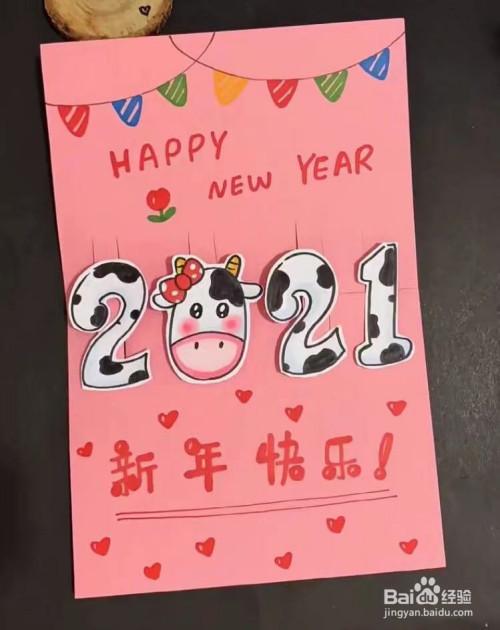 HAPPY
NEW YEAR
2021
新年快乐!
Baidu经验
jingyan.baidu.com